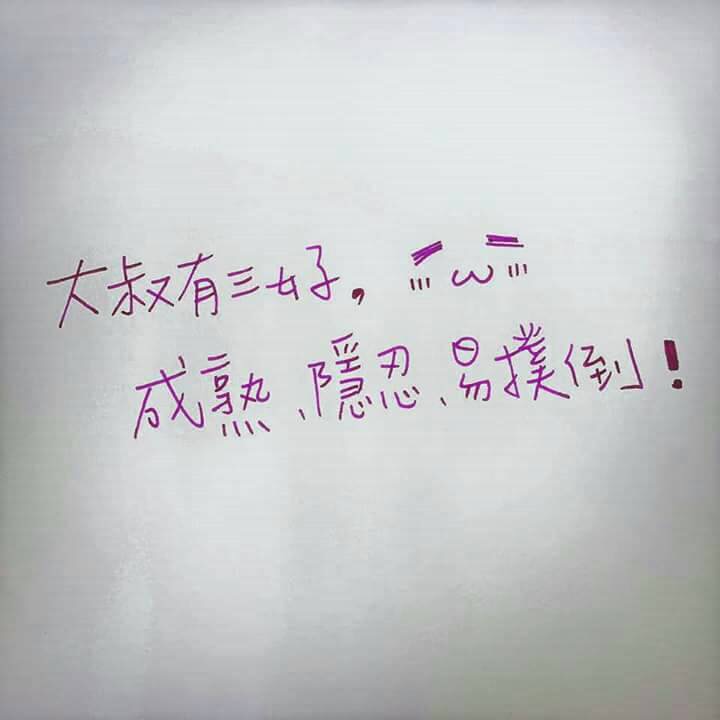 大叔有三好,¯ω¯
成熟、隱忍、易撲倒!